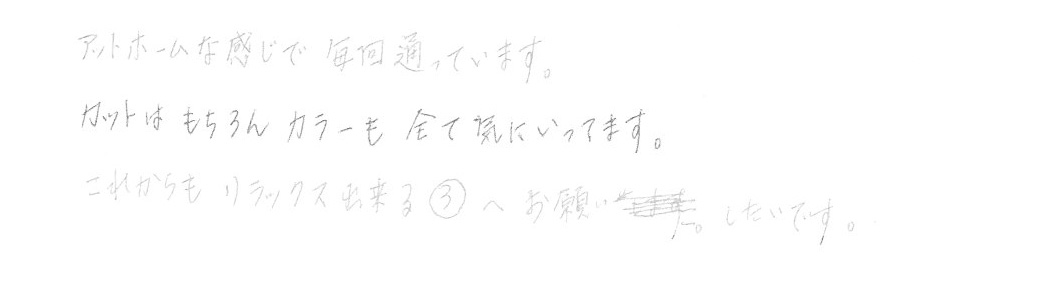 アットホームな感じで 毎回通っています。
カットは もちろん カラーも 全て気にいってます。
これからも リラックス出来る ③ へ お願い したいです。